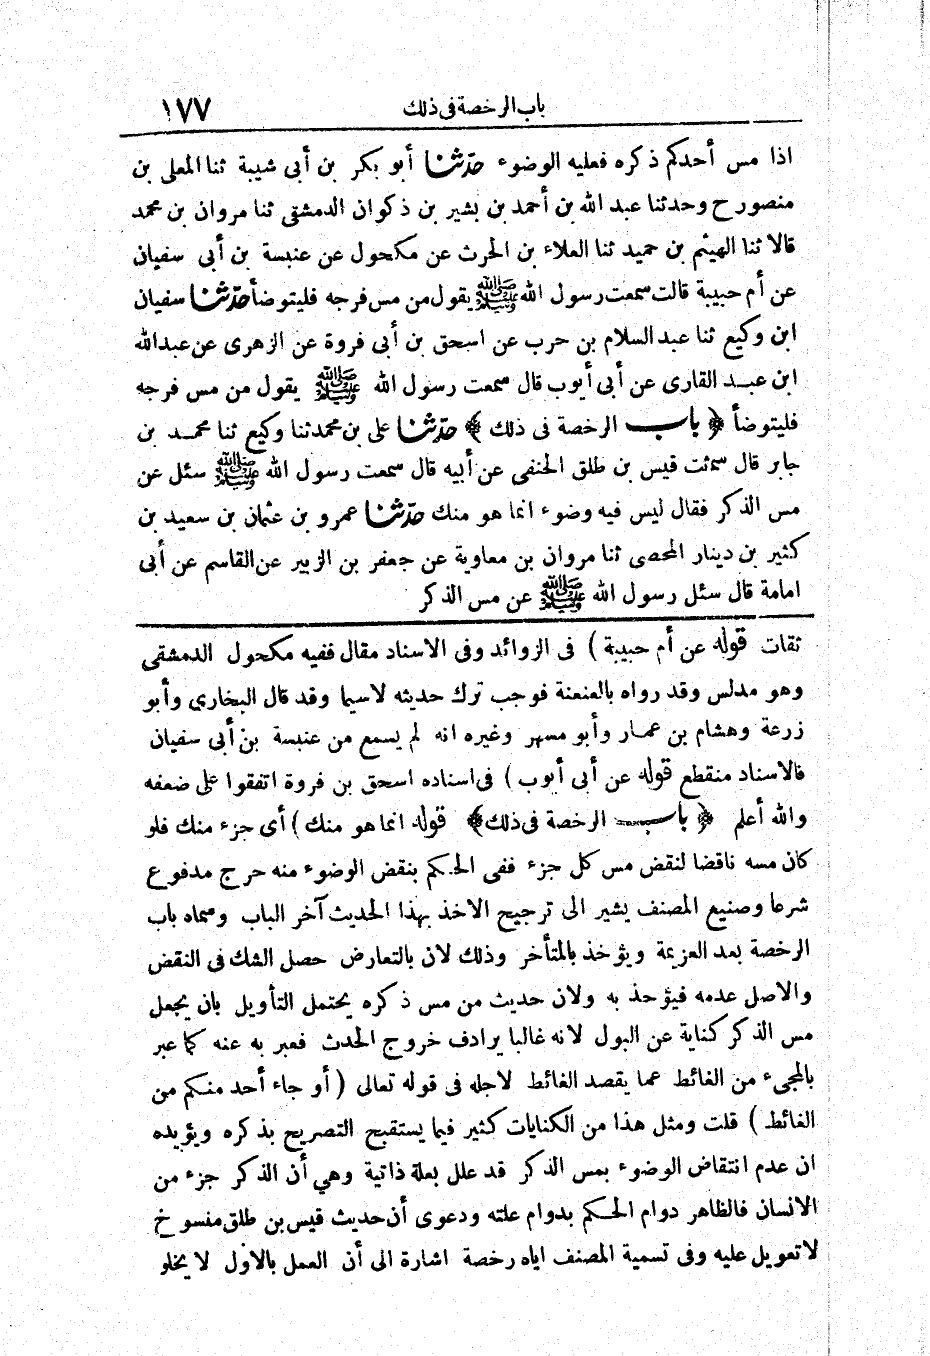 باب الرخصة فى ذلك ١٧٧
اذا مس أحدكم ذكره فعليه الوضوء حدّثنا أبو بكر بن أبى شيبة ثنا المعلى بن
منصور ح وحدثنا عبد الله بن أحمد بن بشير بن ذكوان الدمشقى ثنا مروان بن محمد
قالا ثنا الهيثم بن حميد ثنا العلاء بن الحرث عن مكحول عن عنبسة بن أبى سفيان
عن أم حبيبة قالت سمعت رسول الله ﷺ يقول من مس فرجه فليتوضأ حدّثنا سفيان
ابن وكيع ثنا عبد السلام بن حرب عن اسحق بن أبى فروة عن الزهرى عن عبدالله
ابن عبد القارى عن أبى أيوب قال سمعت رسول الله ﷺ يقول من مس فرجه
فليتوضأ ﴿ باب الرخصة فى ذلك ﴾ حدّثنا على بن محمد ثنا وكيع ثنا محمد بن
جابر قال سمعت قيس بن طلق الحنفى عن أبيه قال سمعت رسول الله ﷺ سئل عن
مس الذكر فقال ليس فيه وضوء انما هو منك حدّثنا عمرو بن عثمان بن سعيد بن
كثير بن دينار الحمصى ثنا مروان بن معاوية عن جعفر بن الزبير عن القاسم عن أبى
امامة قال سئل رسول الله ﷺ عن مس الذكر
ثقات قوله عن أم حبيبة ) فى الزوائد وفى الاسناد مقال ففيه مكحول الدمشقى
وهو مدلس وقد رواه بالعنعنة فوجب ترك حديثه لاسيما وقد قال البخارى وأبو
زرعة وهشام بن عمار وأبو مسهر وغيره انه لم يسمع من عنبسة بن أبى سفيان
فالاسناد منقطع قوله عن أبى أيوب ) فى اسناده اسحق بن فروة اتفقوا على ضعفه
والله أعلم ﴿ باب الرخصة فى ذلك ﴾ قوله انما هو منك ) أى جزء منك فلو
كان مسه ناقضا لنقض مس كل جزء ففى الحكم بنقض الوضوء منه حرج مدفوع
شرعا وصنيع المصنف يشير الى ترجيح الاخذ بهذا الحديث آخر الباب وسماه باب
الرخصة بعد العزيمة ويؤخذ بالمتأخر وذلك لان بالتعارض حصل الشك فى النقض
والاصل عدمه فيؤخذ به ولان حديث من مس ذكره يحتمل التأويل بان يجعل
مس الذكر كناية عن البول لانه غالبا يرادف خروج الحدث فعبر به عنه كما عبر
بالمجىء من الغائط عما يقصد الغائط لاجله فى قوله تعالى ( أو جاء أحد منكم من
الغائط ) قلت ومثل هذا من الكنايات كثير فيما يستقبح التصريح بذكره ويؤيده
ان عدم انتقاض الوضوء بمس الذكر قد علل بعلة ذاتية وهي أن الذكر جزء من
الانسان فالظاهر دوام الحكم بدوام علته ودعوى أن حديث قيس بن طلق منسوخ
لا تعويل عليه وفى تسمية المصنف اياه رخصة اشارة الى أن العمل بالاول لا يخلو